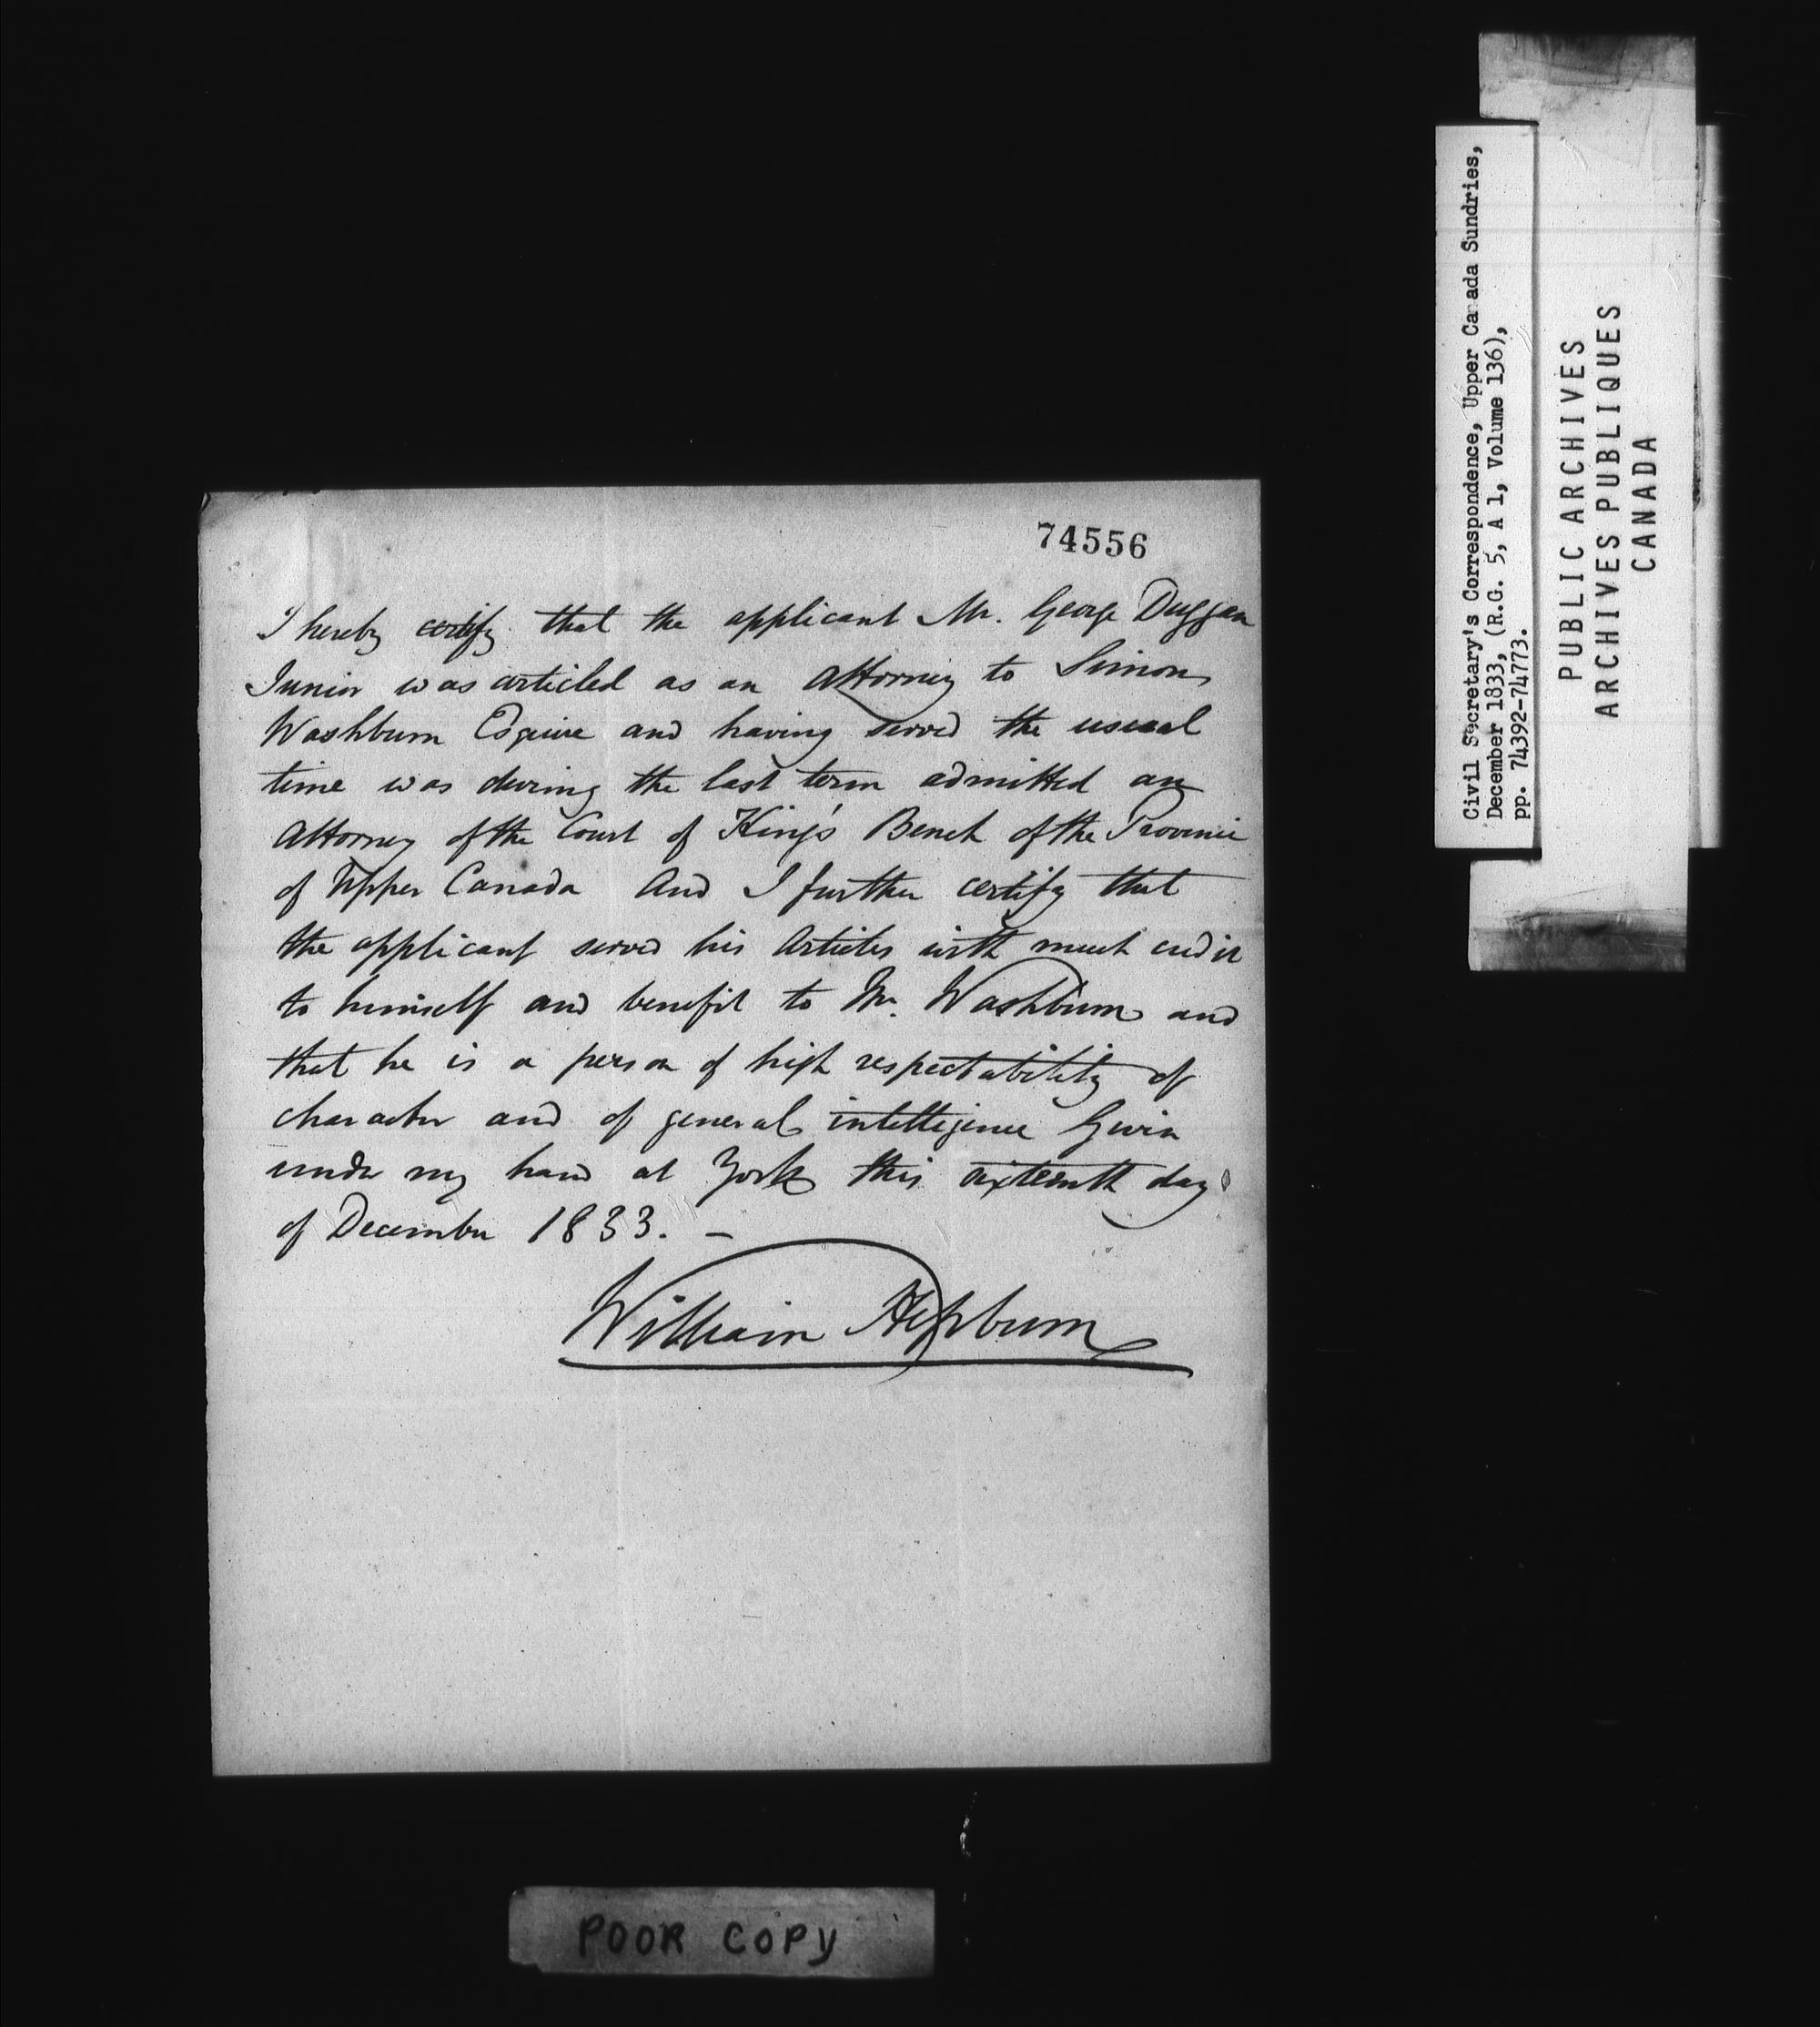 74556
I hereby certify that the applicant Mr. George Duggan
Junior was articled as an Attorney to Simon
Washburn Esquire and having served the usual
time was during the last term admitted an
Attorney of the Court of King's Bench of the Province
of Upper Canada And I further certify that
the applicant served his Articles with much credit
to himself and benefit to Mr. Washburn and
that he is a person of high respectability of
character and of general intelligence Given
under my hand at York this sixteenth day
of December 1833. –
William Hepburn
Civil Secretary's Correspondence, Upper Canada Sundries,
December 1833, (R.G. 5, A 1, Volume 136),
pp. 74392-74773.
PUBLIC ARCHIVES
ARCHIVES PUBLIQUES
CANADA
POOR COPY